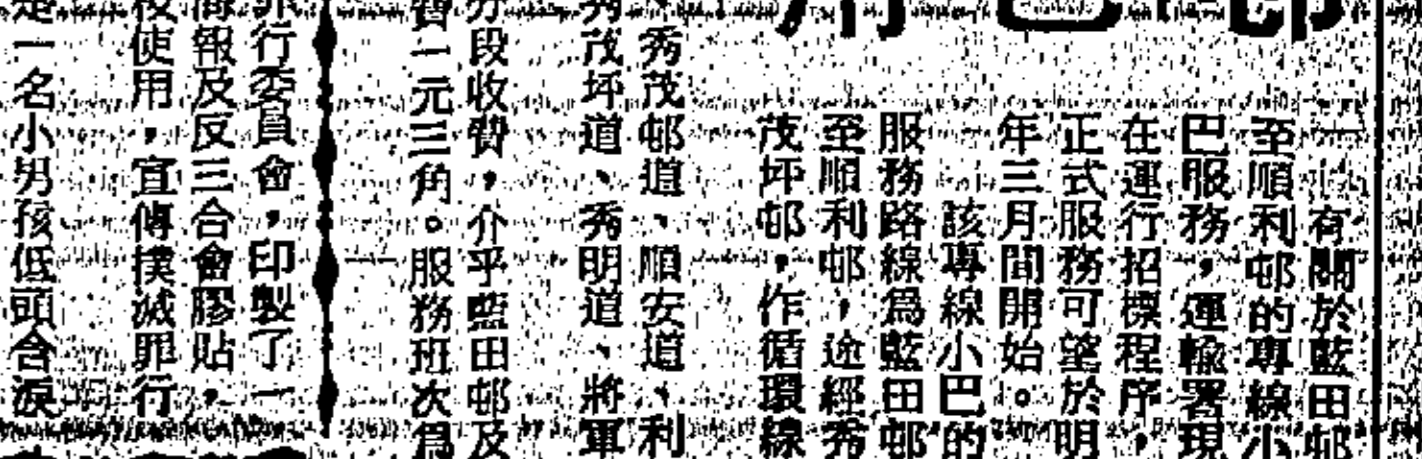 有關於藍田邨
至順利邨的專線小
巴服務，運輸署現
在運行招標程序，
正式服務可望於明
年三月間開始。
該專線小巴的
服務路線爲藍田邨
至順利邨，途經秀
茂坪邨，作循環線
秀茂邨道、順安道、利
秀茂坪道、秀明道、將軍
分段收費，介乎藍田邨及
費一元三角。服務班次爲
行委員會，印製了一
海報及反三合會膠貼，
校使用，宣傳撲滅罪行
是一名小男孩低頭含淚